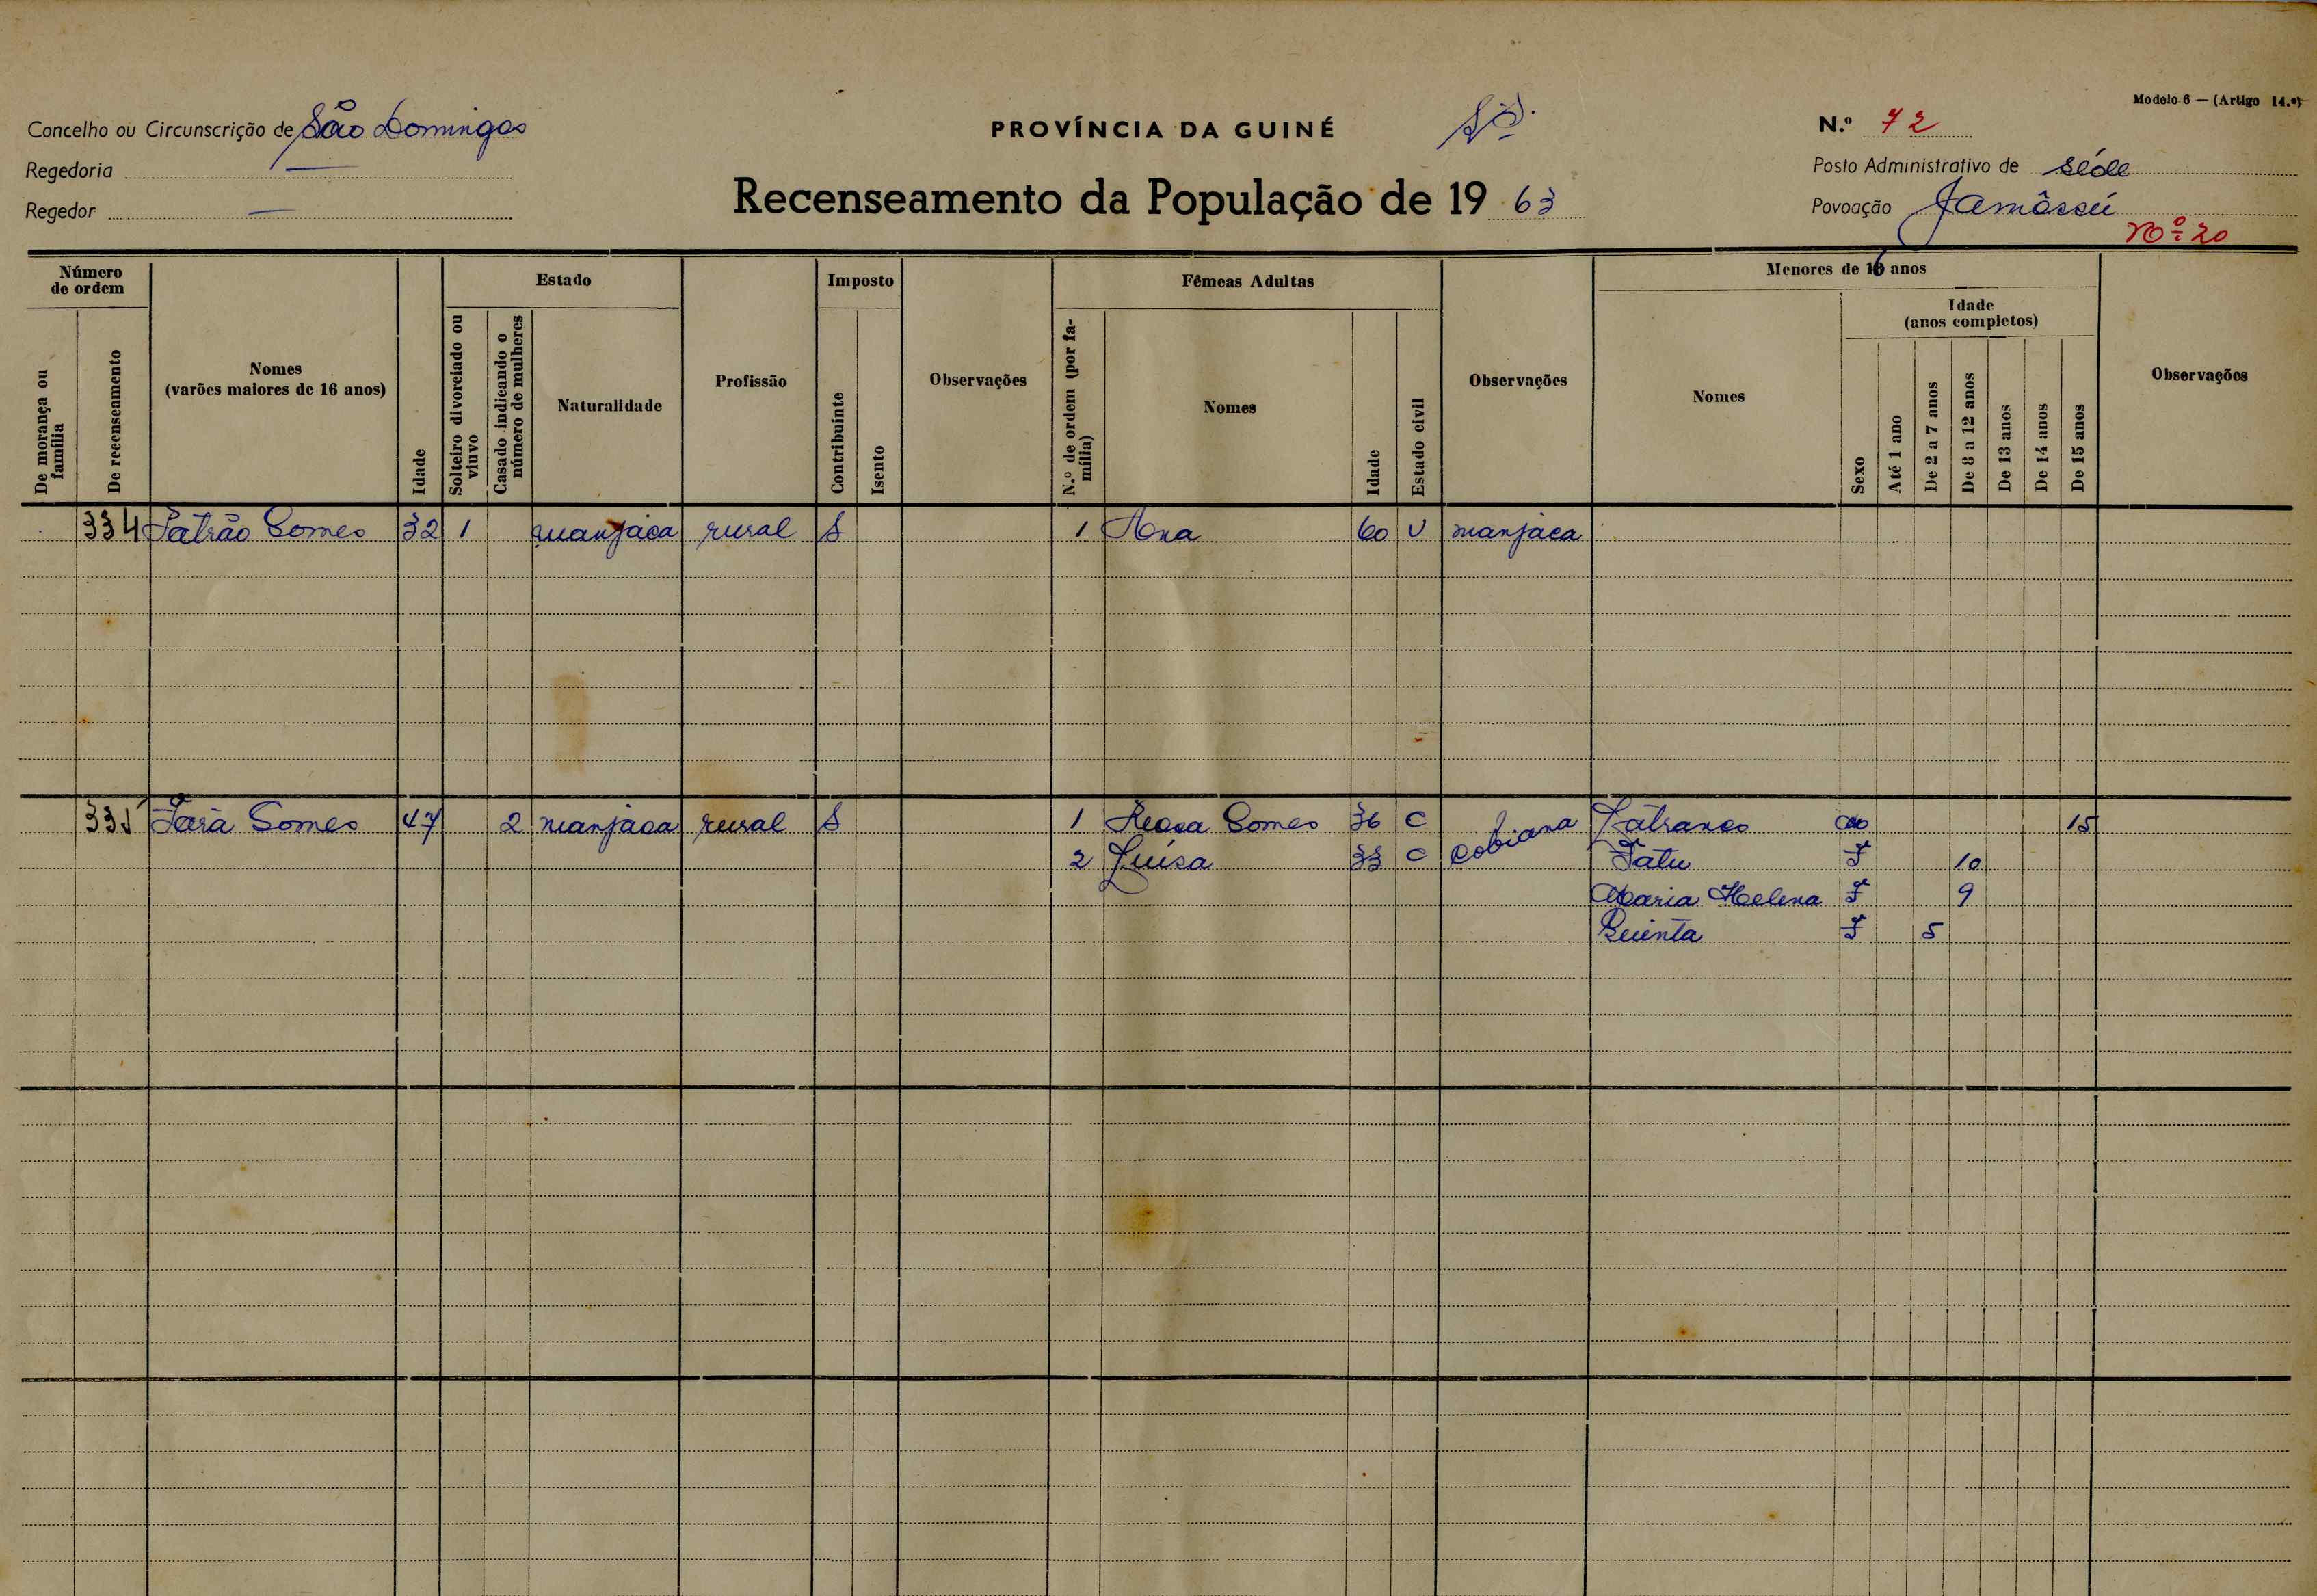 Modelo 6 — (Artigo 14.º)
Concelho ou Circunscrição de São Domingos
PROVÍNCIA DA GUINÉ
N.º 72
Regedoria —
Posto Administrativo de Séde
Regedor —
Recenseamento da População de 19 63
Povoação Jamôssú
Nº 20
Número de ordem
Estado
Imposto
Fêmeas Adultas
Menores de 16 anos
Idade (anos completos)
De morança ou família
De recenseamento
Nomes (varões maiores de 16 anos)
Idade
Solteiro divorciado ou viuvo
Casado indicando o número de mulheres
Naturalidade
Profissão
Contribuinte
Isento
Observações
N.º de ordem (por família)
Nomes
Idade
Estado civil
Observações
Nomes
Sexo
Até 1 ano
De 2 a 7 anos
De 8 a 12 anos
De 13 anos
De 14 anos
De 15 anos
Observações
334 Patrão Gomes 32 1 manjaca rural S 1 Ana 60 V manjaca
335 Gomes 47 2 manjaca rural S 1 Gomes 36 C Cobiana 15
2 Luísa 33 C Fatu F 10
Maria Helena F 9
Quinta F 5